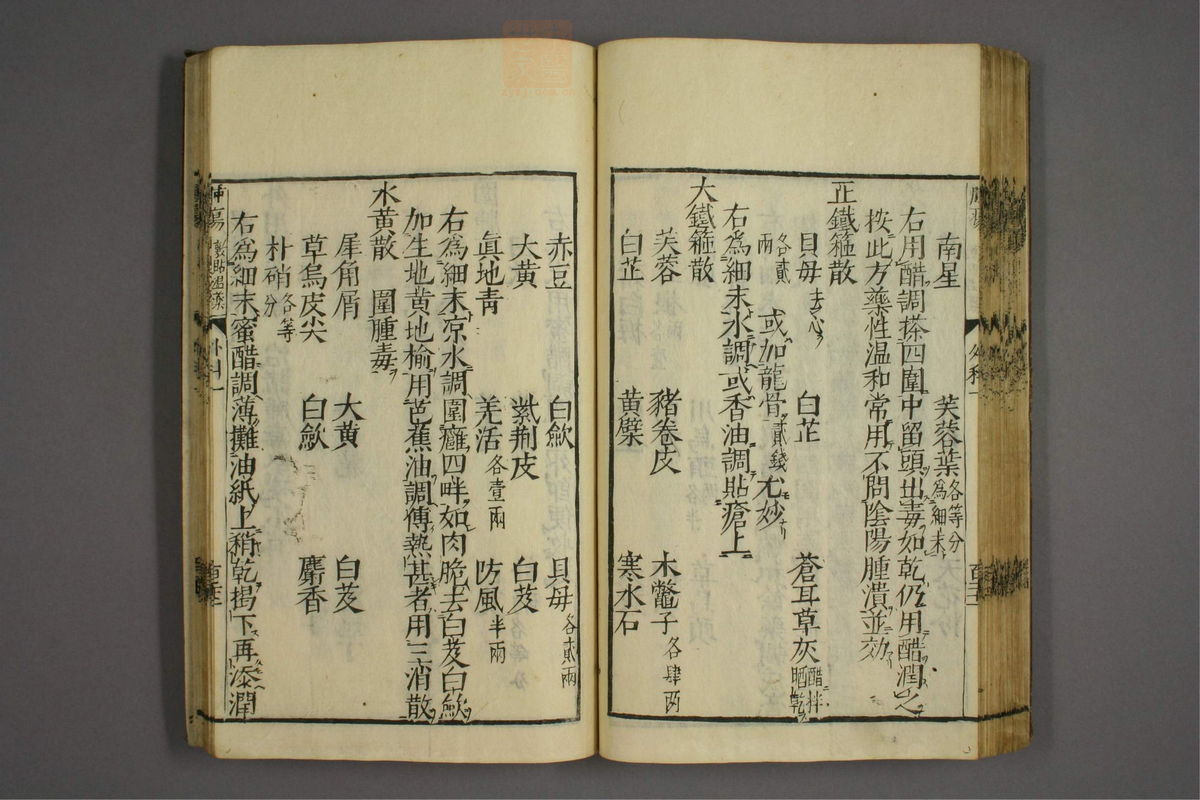 南星　芙蓉葉各等分為細末
右用醋調搽四圍中留頭出毒如乾仍用醋潤之
按此方藥性温和常用不問陰陽腫潰並効
正鐵箍散
貝母去心　白芷　蒼耳草灰醋拌晒乾
各貳兩　或加龍骨貳錢尤妙
右為細末水調或香油調貼瘡上
大鐵箍散
芙蓉　豬卷皮　木鼈子各肆两
白芷　黄檗　寒水石
赤豆　白歛　貝母各貳兩
大黄　紫荆皮　白芨
眞地青　羌活各壹兩　防風半兩
右為細末凉水調圍癰四畔如肉脆去白芨白歛
加生地黄地榆用芭蕉油調傅熱甚者用三消散
水黄散　圍腫毒
犀角屑　大黄　白芨
草烏皮尖　白歛　麝香
朴硝各等分
右為細末蜜醋調薄攤油紙上稍乾揭下再添潤